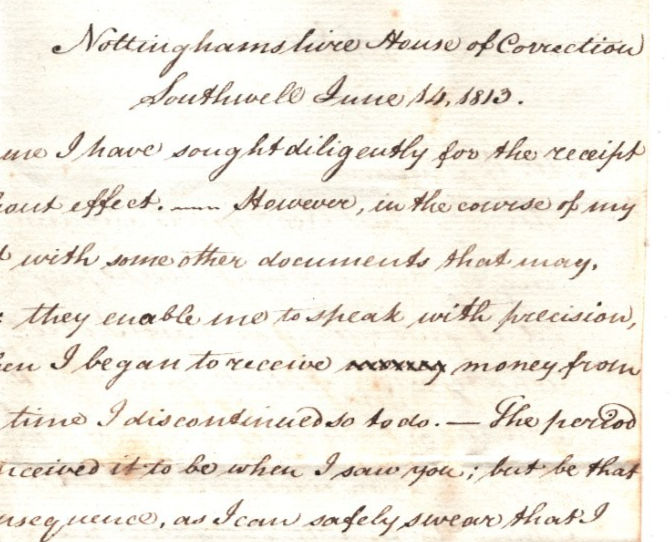 Nottinghamshire House of Correction
Southwell June 14, 1813.
me I have sought diligently for the receipt
out effect. — However, in the course of my
with some other documents that may,
: they enable me to speak with precision,
en I began to receive money from
time I discontinued so to do. — The period
ceived it to be when I saw you; but be that
nsequence, as I can safely swear that I